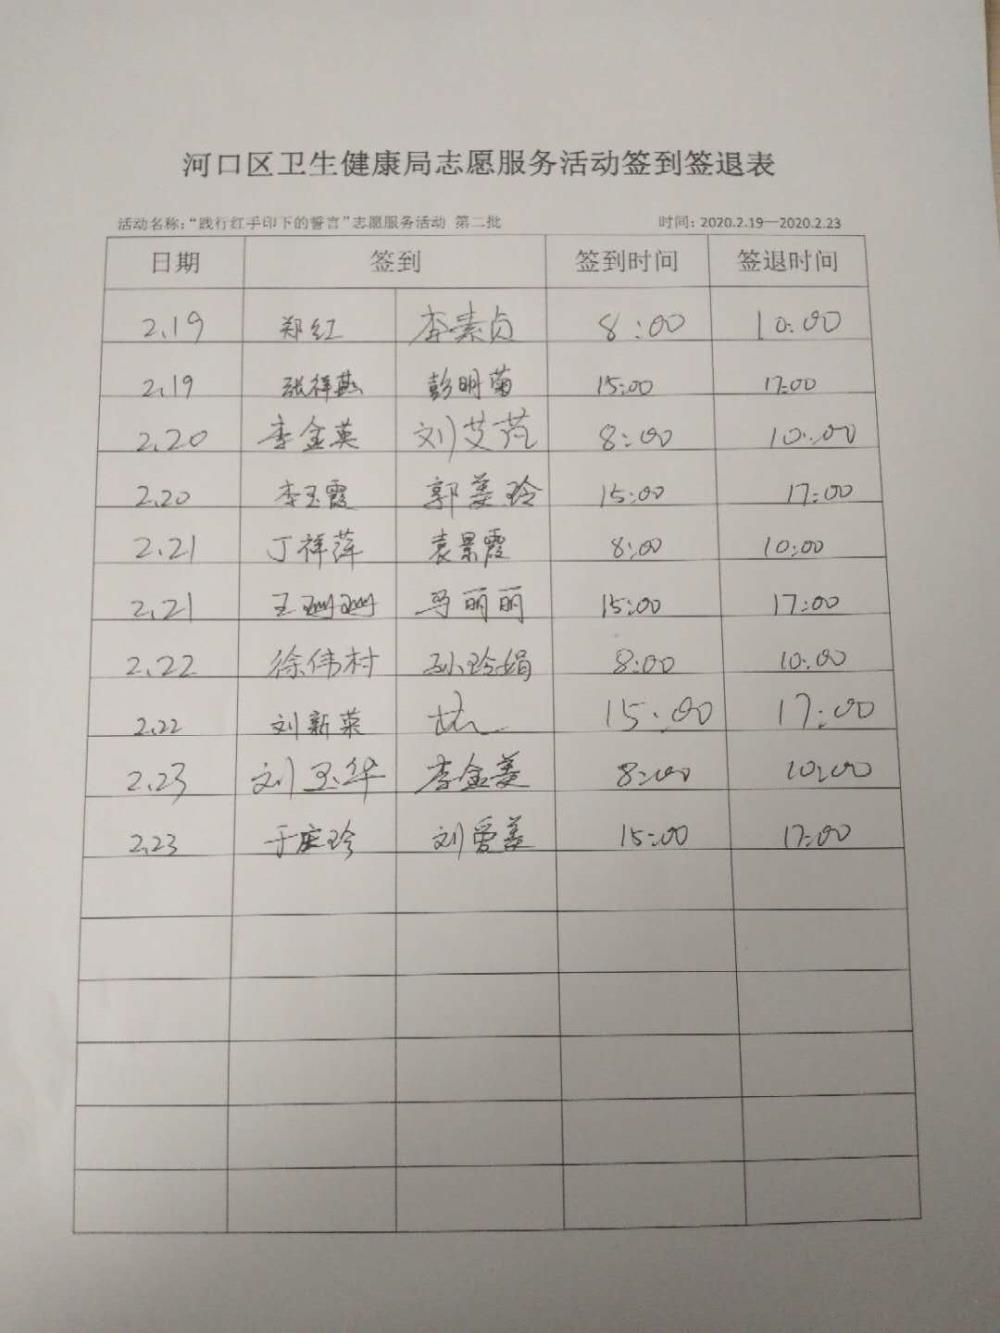 河口区卫生健康局志愿服务活动签到签退表
活动名称：“践行红手印下的誓言”志愿服务活动 第二批 时间：2020.2.19—2020.2.23
日期 签到 签到时间 签退时间
2.19 郑红 李素贞 8:00 10:00
2.19 张祥燕 彭明菊 15:00 17:00
2.20 李金英 刘艾芹 8:00 10:00
2.20 李玉霞 郭美玲 15:00 17:00
2.21 丁祥萍 袁景霞 8:00 10:00
2.21 王珊珊 马丽丽 15:00 17:00
2.22 徐伟村 孙玲娟 8:00 10:00
2.22 刘新荣 15:00 17:00
2.23 刘玉华 李金美 8:00 10:00
2.23 于庆珍 刘爱美 15:00 17:00